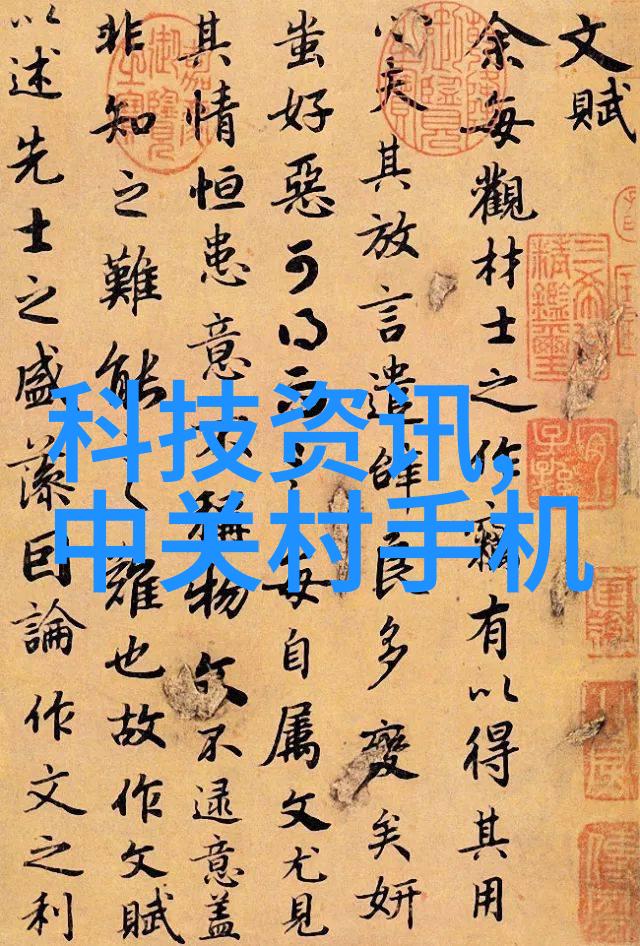 文賦
余每觀材士之作竊有以得其用
心夫其放言遣辭良多變矣妍
蚩好惡可得而言每自屬文尤見
其情恒患意不稱物文不逮意蓋
非知之難能之難也故作文賦
以述先士之盛藻因論作文之利
科技资讯,
中关村手机
三希堂精鑑璽
宜子孫